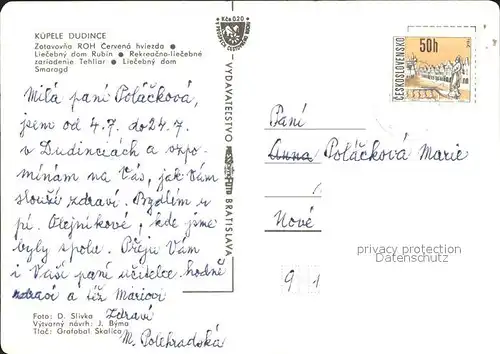 KÚPELE DUDINCE
Zotavovňa ROH Červená hviezda ●
Liečebný dom Rubín ● Rekreačno-liečebné
zariadenie Tehliar ● Liečebný dom
Smaragd
Milá paní Poláčková,
jsem od 4.7. do 24.7.
v Dudincích a vzpo-
mínám na Vás, jak Vám
slouží zdraví. Bydlím u
pí. Olejníkové, kde jsme
byly spolu. Přeju Vám
i Vaší paní učitelce hodně
zdraví a též Marice
Zdraví
M. Polehradská
Foto: D. Slivka
Výtvarný návrh: J. Býma
Tlač: Grafobal Skalica
Kčs 0,20
VYDAVATEĽSTVO
BRATISLAVA
ČESKOSLOVENSKO
50h
Paní
Anna Poláčková Marie
Nové
9 1
privacy protection
Datenschutz